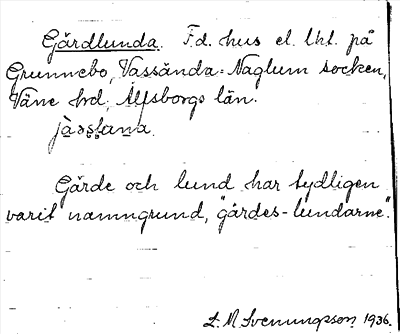 Gärdlunda. F.d. hus el. lht. på
Grunnebo, Vassända-Naglum socken,
Väne hrd, Älfsborgs län.
Gärde och lund har tydligen
varit namngrund, "gärdes-lundarne".
L. M. Svenungsson 1936.